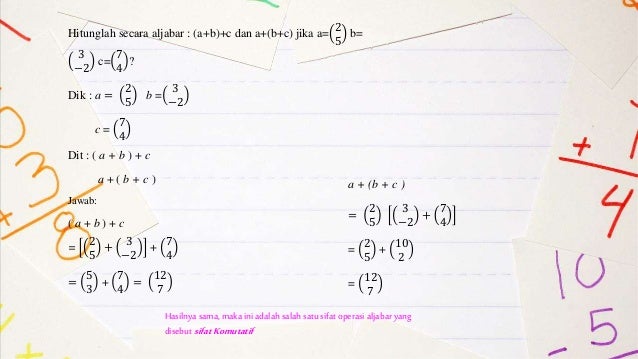 Hitunglah secara aljabar : (a+b)+c dan a+(b+c) jika a=(2 5) b=
(3 −2) c=(7 4)?
Dik : a = (2 5) b =(3 −2)
c = (7 4)
Dit : ( a + b ) + c
a + ( b + c )
Jawab:
( a + b ) + c
= [(2 5) + (3 −2)] + (7 4)
= (5 3) + (7 4) = (12 7)
a + (b + c )
= (2 5) [(3 −2) + (7 4)]
= (2 5) + (10 2)
= (12 7)
Hasilnya sama, maka ini adalah salah satu sifat operasi aljabar yang
disebut sifat Komutatif
+ 1
4
10
- 5